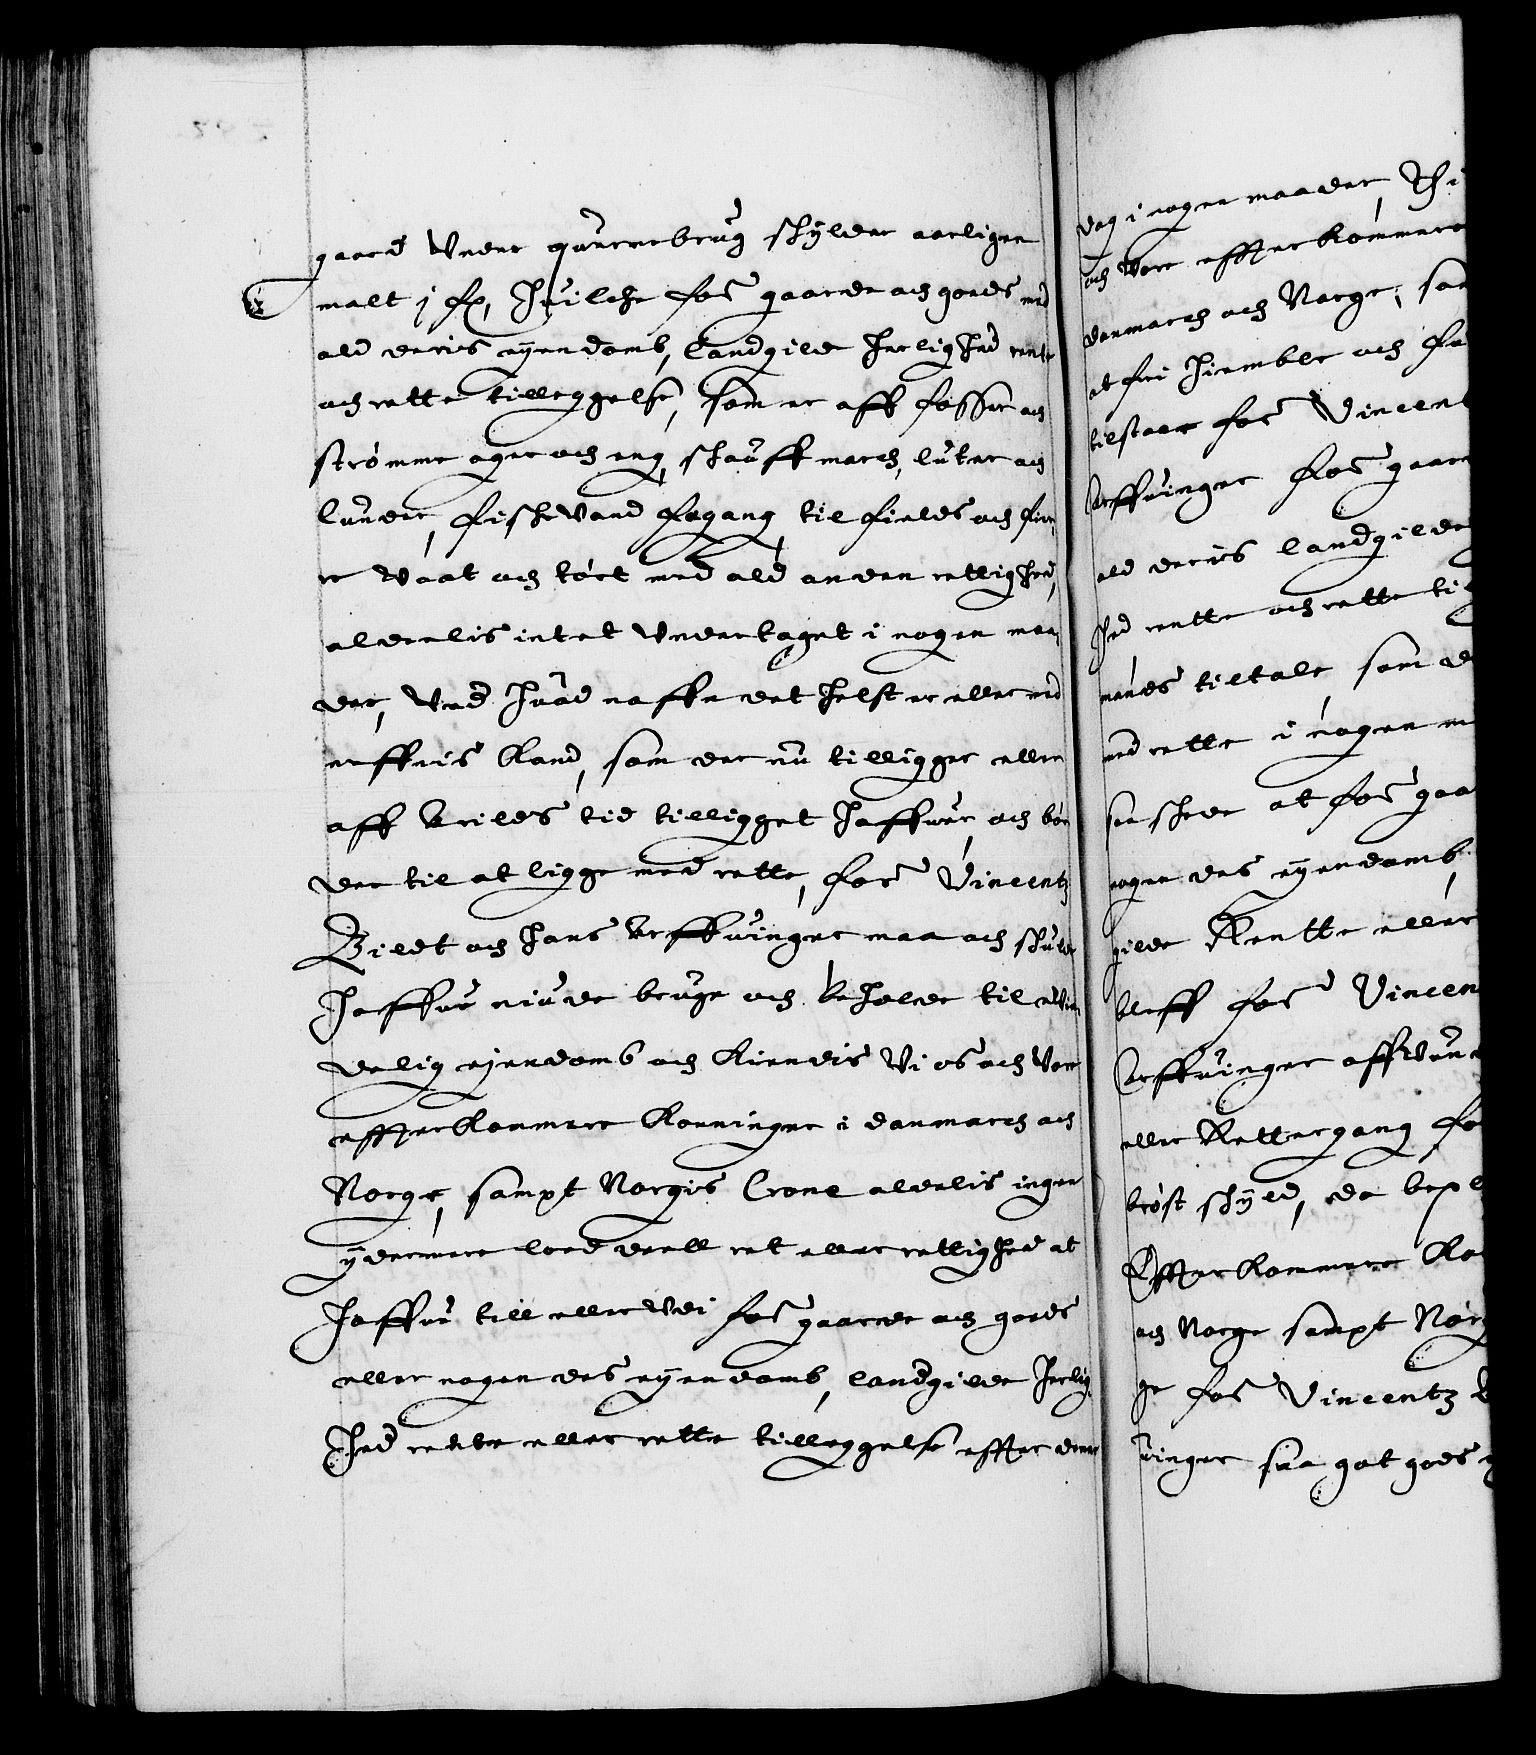 gaard Under quernebrug schylder aarligen
malt j fp, Huilche for.ne gaarde och goeds med
ald deris eyendomb, Landgilde herlighed rente
och rette tilleggelse, som er aff fosser och
strømme ager och eng, schauff march, luter och
lunder, fischevand fegang til fields och fier
re vaat och tørt med ald anden rettighed,
aldeelis intet Undertaget i nogen maa
der, Ved huad naffn det helst er eller med
neffnis Kand, som der nu tilligger eller
aff Arilds tid tilligget haffuer, och bør
der til at ligge med rette, for.ne Vincentz
Bildt och hans Arffuinger maa och schulle
haffue niude bruge och beholde til
delig eyendomb och Kiendis Vi os och Vore
effterkommere Konninger i danmarch och
Norge, sampt Norgis Crone aldelis ingen
ydermere loed deell ret eller rettighed at
haffue till eller Vdi for.ne gaarde och goeds
eller nogen des eyendomb, landgilde herlig
hed rente eller rette tilleggelse effter denne
dag i nogen maader, Thi
och Vore effterkommere
danmarch och Norge, som
at fri hiemble och
tilstaae for.ne Vincent
Arffuinger for.ne gaar
ald deris landgilde
hed rentte och rette til
mands tiltale, som d
med rette i nogen m
saa schede at for.ne gaa
nogen des eyendomb,
gilde Rentte eller
bleff for.ne Vincen
Arffuinger affVun
eller Rettergang, fo
brøst schyld, da bepl
Effterkommere Ko
och Norge sampt Nor
ge for.ne Vincentz
uinger saa got gods